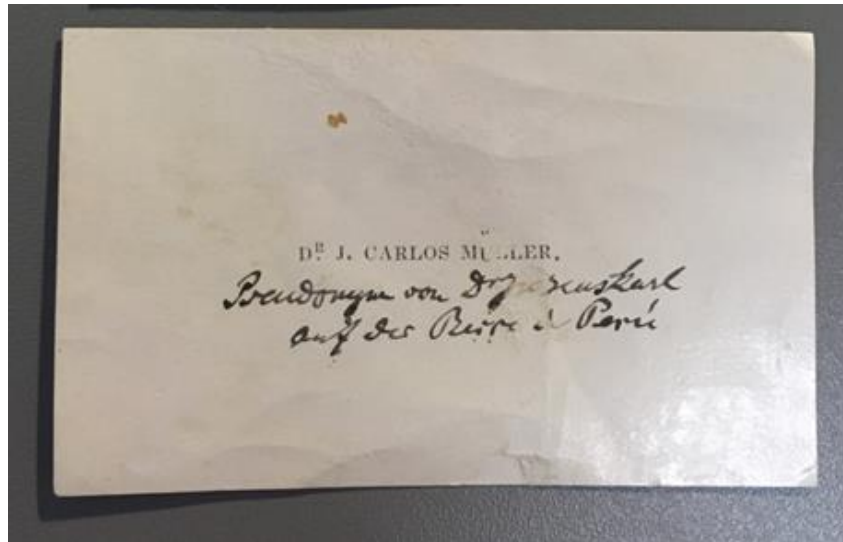 DR. J. CARLOS MÜLLER.
Pseudonym von Dr
auf der Reise in Perú